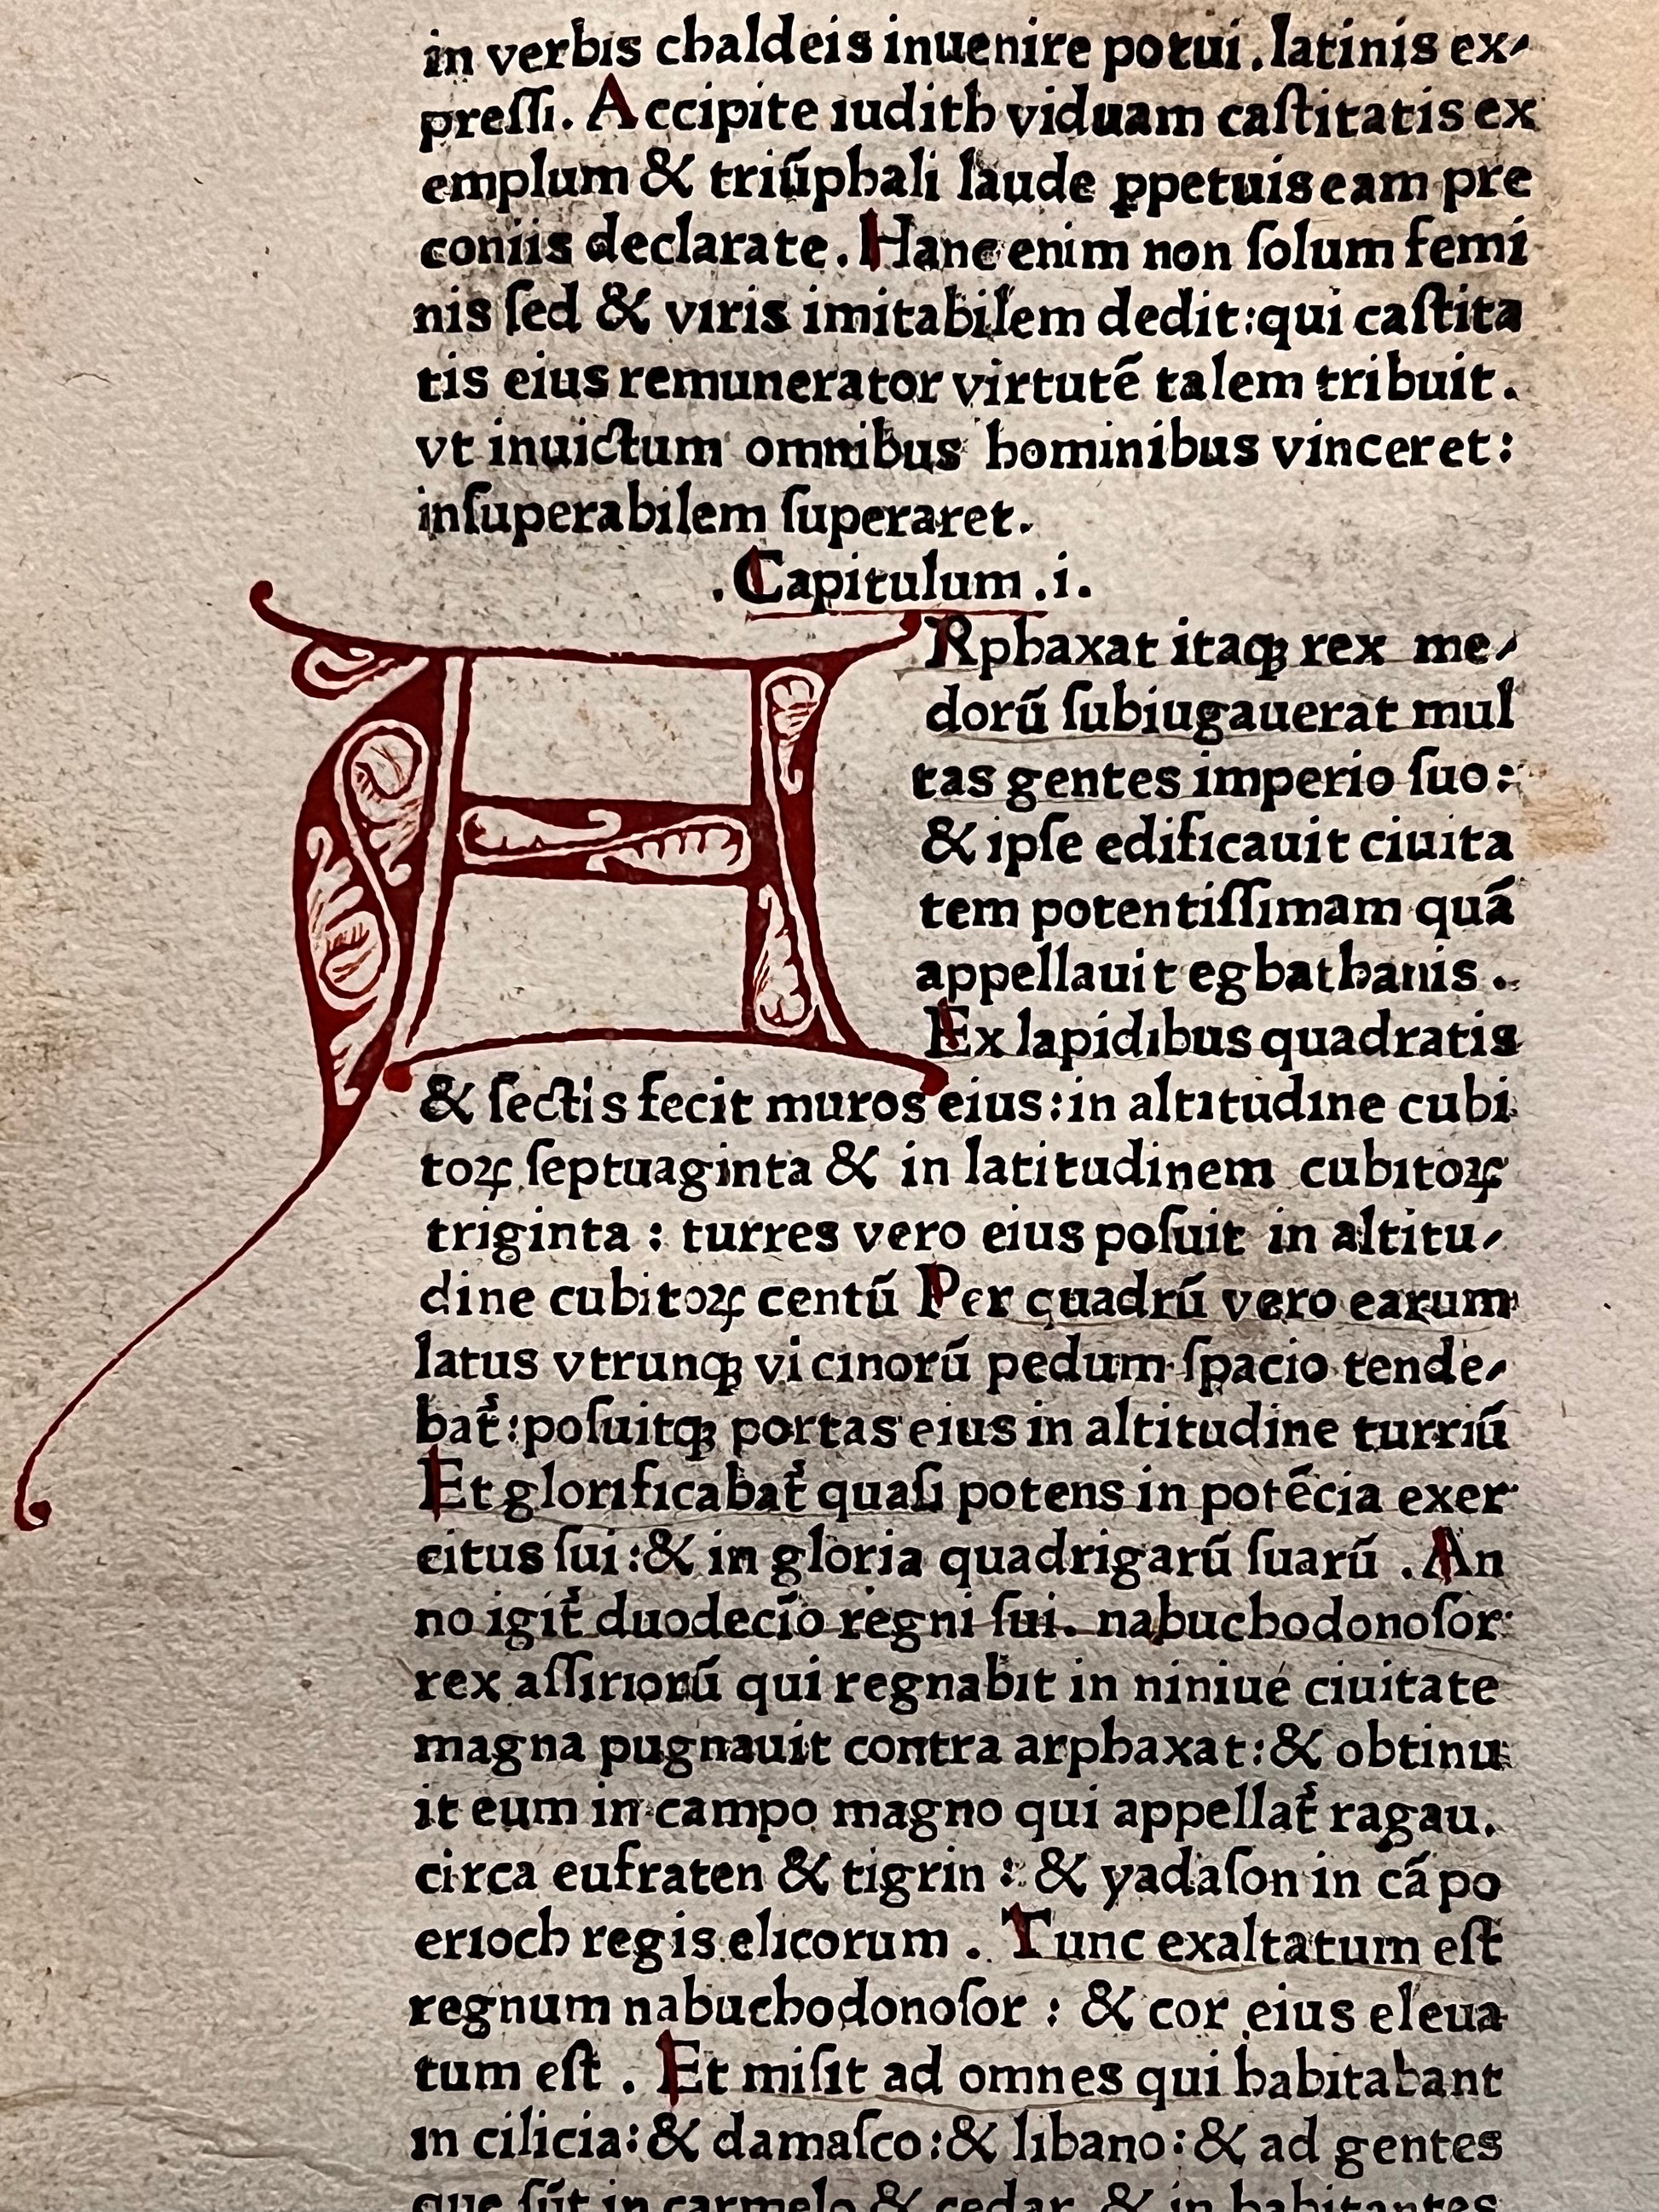 in verbis chaldeis inuenire potui. latinis ex⸗
preſſi. Accipite iudith viduam caſtitatis ex
emplum & triūphali laude ꝑpetuis eam pre
coniis declarate. Hanc enim non ſolum femi
nis ſed & viris imitabilem dedit: qui caſtita
tis eius remunerator virtutē talem tribuit.
vt inuictum omnibus hominibus vinceret:
inſuperabilem ſuperaret.
.Capitulum .i.
ARphaxat itaqꝫ rex me⸗
dorū ſubiugauerat mul
tas gentes imperio ſuo:
& ipſe edificauit ciuita
tem potentiſſimam quā
appellauit egbathanis .
Ex lapidibus quadratis
& ſectis fecit muros eius: in altitudine cubi
toꝝ ſeptuaginta & in latitudinem cubitoꝝ
triginta : turres vero eius poſuit in altitu⸗
dine cubitoꝝ centū Per quadrū vero earum
latus vtrunqꝫ vicinorū pedum ſpacio tende⸗
bat᷑: poſuitqꝫ portas eius in altitudine turriū
Et glorificabat᷑ quaſi potens in potēcia exer
citus ſui: & in gloria quadrigarū ſuarū . An
no igit᷑ duodecīo regni ſui. nabuchodonoſor
rex aſſiriorū qui regnabit in niniue ciuitate
magna pugnauit contra arphaxat: & obtinu
it eum in campo magno qui appellat᷑ ragau.
circa eufraten & tigrin : & yadaſon in cāpo
erioch regis elicorum . Tunc exaltatum eſt
regnum nabuchodonoſor : & cor eius eleua
tum eſt . Et miſit ad omnes qui habitabant
in cilicia: & damaſco: & libano: & ad gentes
que ſūt in carmelo & cedar & in habitantes